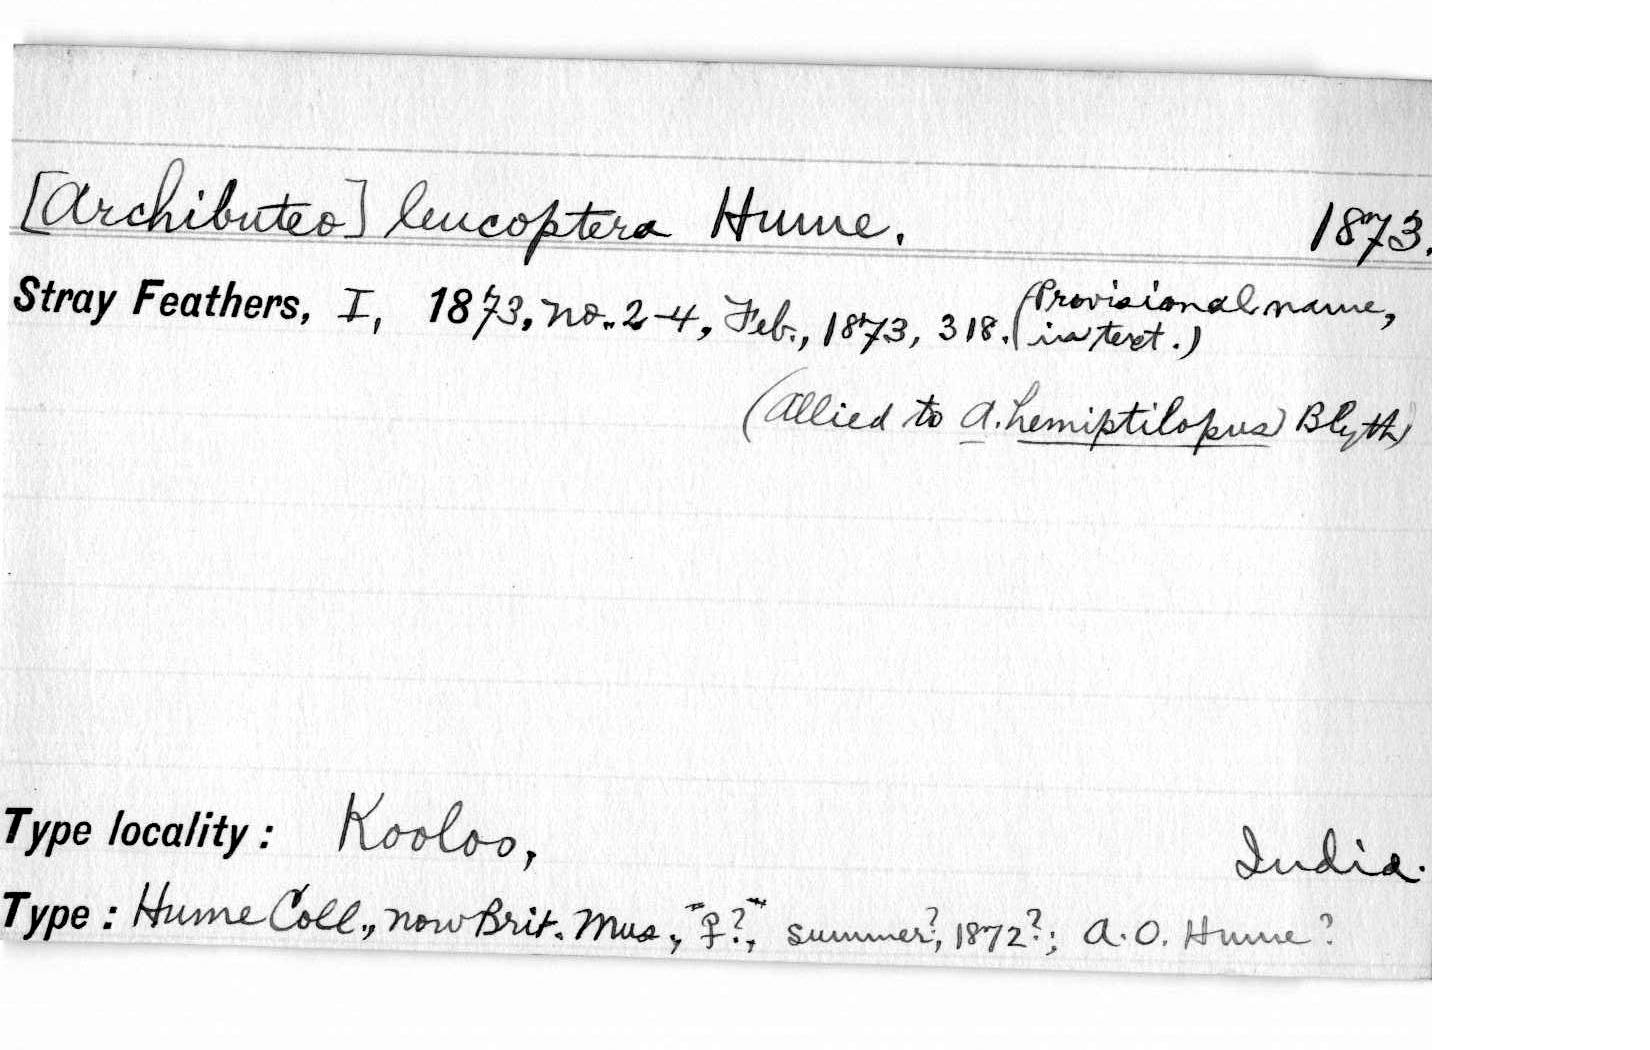 [Archibuteo] leucoptera Hume. 1873.
Stray Feathers, I, 1873, no. 2-4, Feb., 1873, 318. (Provisional name,
in text.)
(Allied to A. hemiptilopus Blyth)
Type locality: Kooloo, India.
Type: Hume Coll., now Brit. Mus., "♀?", summer?, 1872?; A. O. Hume?